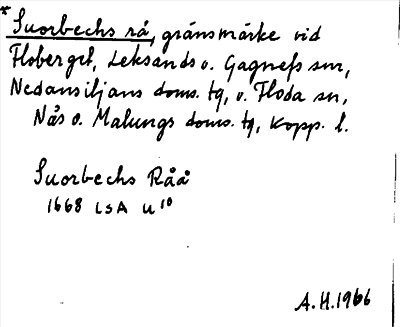 * Suorbechs rå, gränsmärke vid
Floberget, Leksands o. Gagnefs snr,
Nedansiljans doms. tg, o. Floda sn,
Nås o. Malungs doms. tg, Kopp. l.
Suorbechs Råå
1668 LSA U¹⁰
A.H. 1966